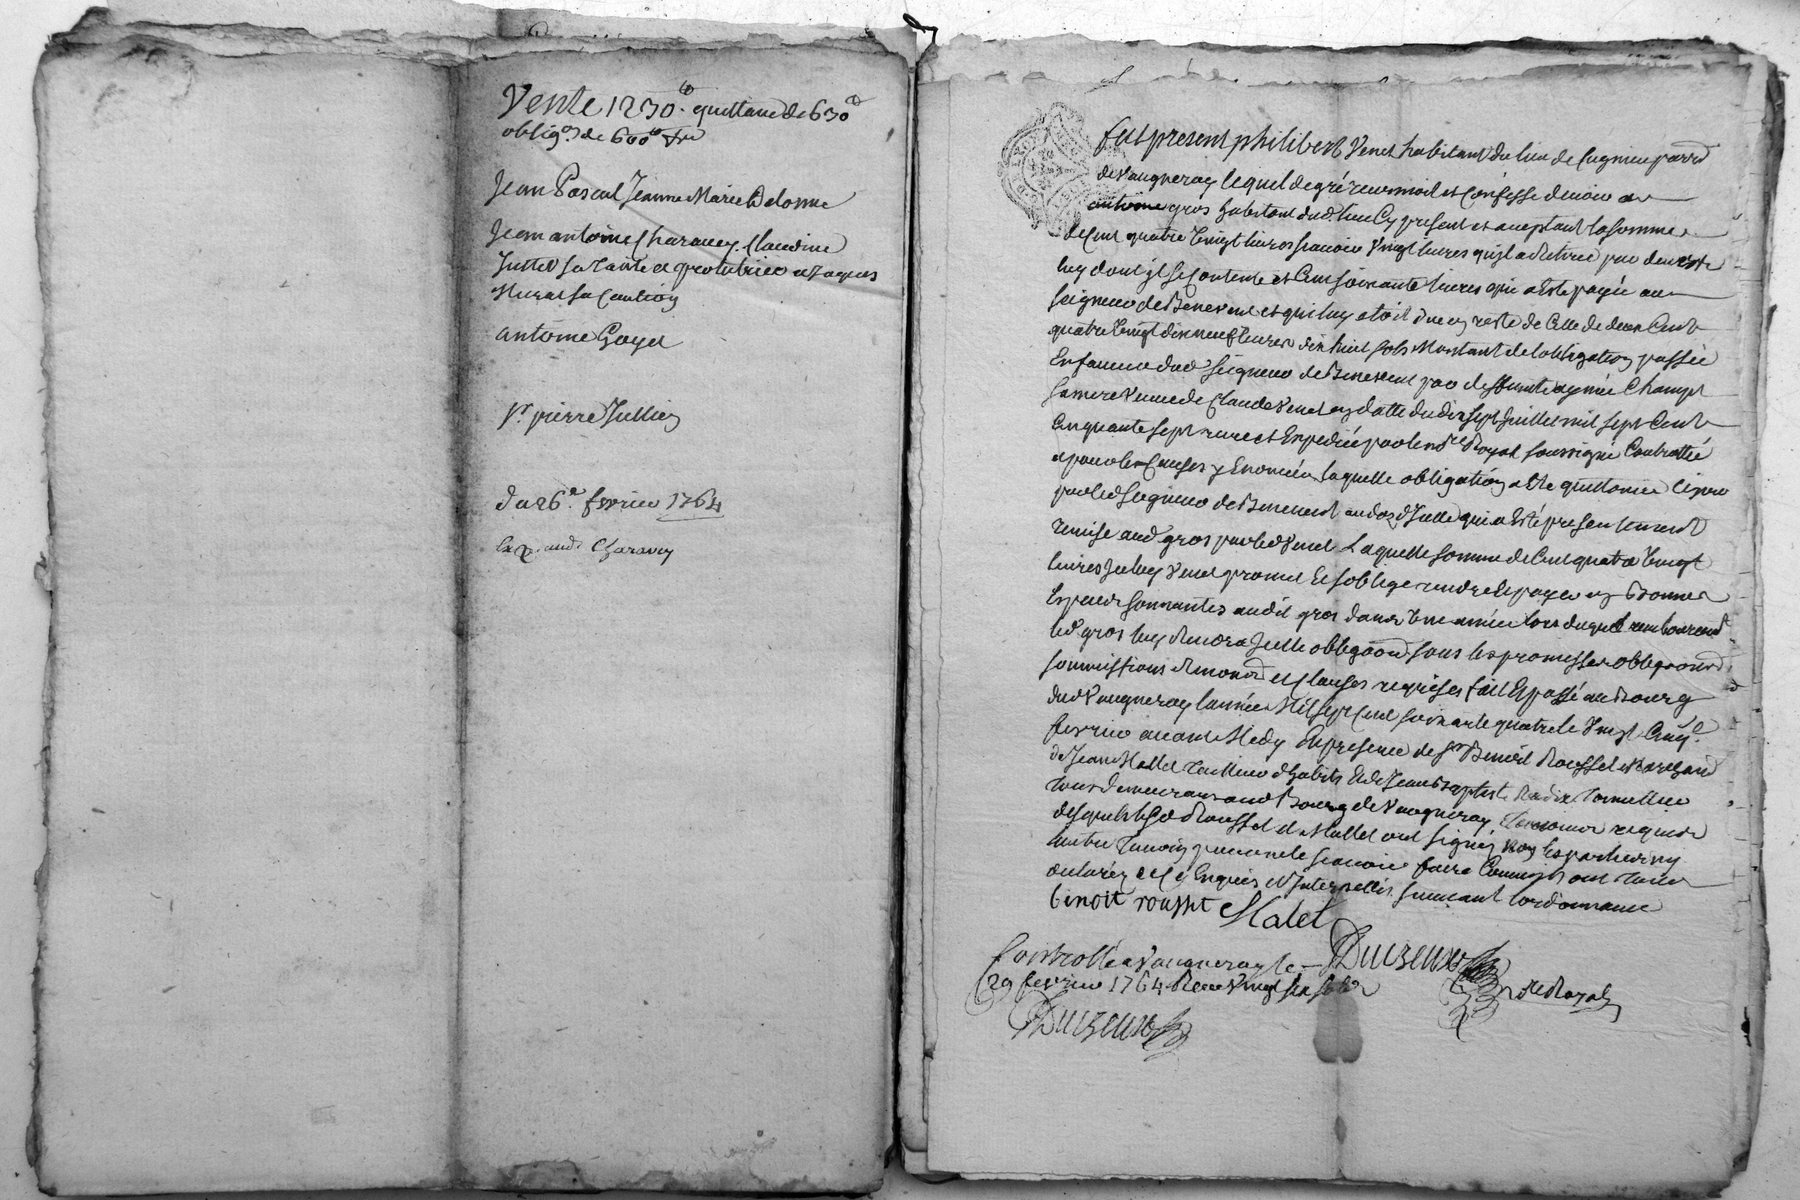 Vente 1230.tt quittance de 630tt
oblig.on de 600tt
Jean Pascal Jeanne Marie Delorme
Jean antoine Charavey, Claudine
Juttet sa tante et
sa Caution
antoine Goyet
Sr. pierre Jullien
du 26.e fevrier 1764
Exp. aud. Charavey
fut present philibert Venet habitant du lieu de parr.
de Vaugneray lequel de gré reconnoit et Confesse devoir a
antoine gros habitant dud. lieu Cy present et acceptant la somme
de Cent quatre Vingt livres scavoir Vingt livres qu'il a Retiré
luy dont il se Contente et Cent soixante livres qui a Esté payée au
seigneur de Benevent et qui luy etoit due en reste de Celle de deux Cent
quatre Vingt dix neuf livres dix huit sols Montant de l'obligation passée
En faveur dud. seigneur de Benevent par deffunte aymée Champt
sa mere Veuve de Claude Venet en datte du dix sept Juillet mil sept Cent
Cinquante sept receu et Expedié par le no.re Royal soussigné Controllé
et pour les Causes y Enoncées laquelle obligation a Esté quittancée
par led. seigneur de Benevent au dos d'Icelle qui a Esté presentement
remise aud. gros par led. Venet Laquelle somme de Cent quatre Vingt
livres Icelluy Venet promet Et s'oblige rendre Et payer en bonnes
Especes sonnantes audit gros dans Une année lors duquel
led. gros luy Rendra Icelle obligaon. sous les promesses obligaons.
soumissions Renonc. et Clauses requises fait Et passé au Bourg
dud. Vaugneray l'année Mil sept Cent soixante quatre le Vingt Cinq.
fevrier avant Midy En presence de Sr. Benoit Rousset Marchand
de Jean Mallet tailleur d'habits Et de Jean Baptiste
tous demeurans aud. Bourg de Vaugneray temoins requis
desquels led. Rousset et Mallet ont signé, non les parties ny
l'autre temoin pour ne le scavoir faire Comme ils ont
declaré de Ce Enquis et Interpellés suivant l'ordonnance
benoit rousset Malet
Controllé a Vaugneray le
29 fevrier 1764 Receu Vingt six sols
no.re Royal